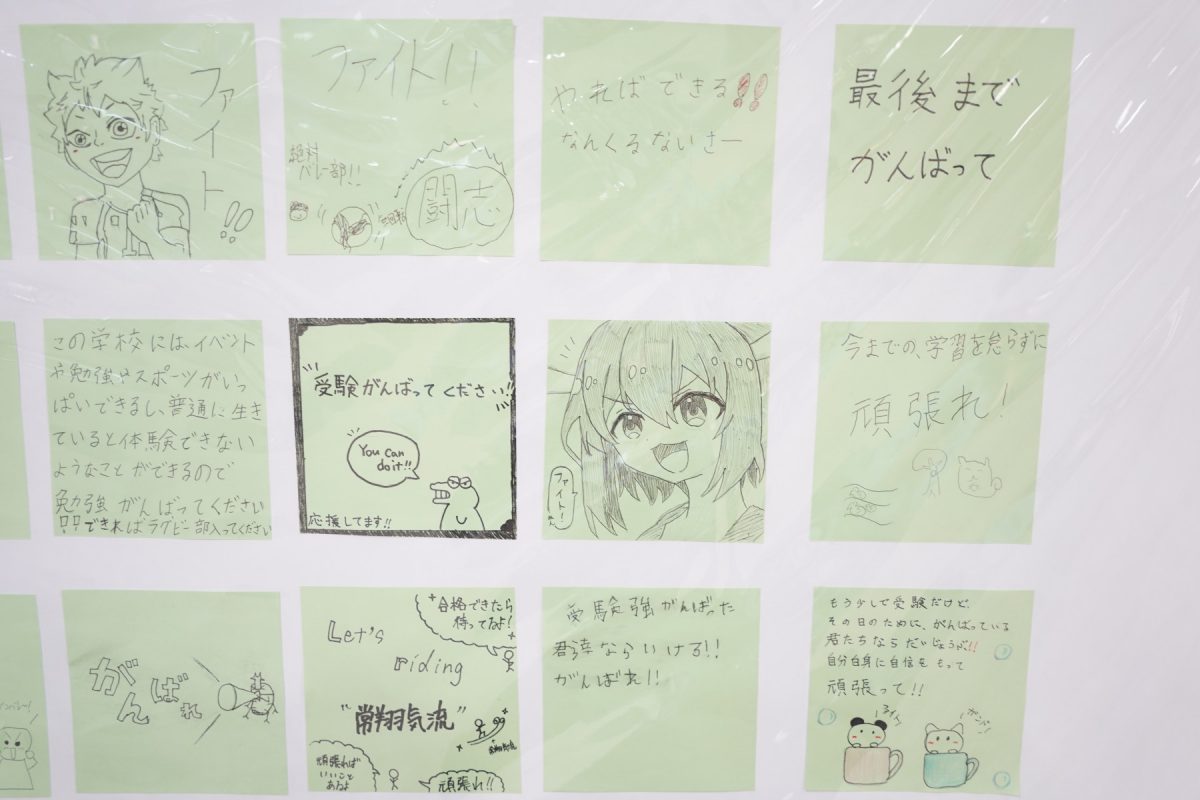 ファイト!!
ファイト!!
絶対
バレー部!!
闘志
やればできる!!
なんくるないさー
最後まで
がんばって
この学校には、イベント
や勉強やスポーツがいっ
ぱいできるし、普通に生き
ていると体験できない
ようなことができるので
勉強がんばってください
!!できればラグビー部入ってください
受験がんばってください!!
You can
do it!!
応援してます!!
ファイト!
今までの、学習を怠らずに
頑張れ!
がんばれ
合格できたら
待ってるよ!
Let's
Riding
"常翔気流"
頑張れば
いいこと
あるよ
頑張れ!!
受験強がんばった
君達ならいける!!
がんばれ!!
もう少しで受験だけど、
その日のために、がんばっている
君たちならだいじょうぶ!!
自分自身に自信をもって
頑張って!!